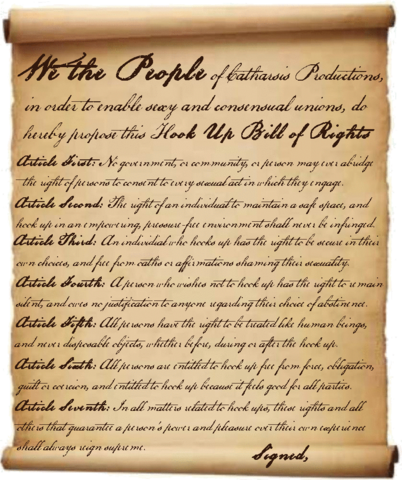 We the People of Catharsis Productions,
in order to enable sexy and consensual unions, do
hereby propose this Hook Up Bill of Rights
Article First: No government, or community, or person may ever abridge
the right of persons to consent to every sexual act in which they engage.
Article Second: The right of an individual to maintain a safe space, and
hook up in an empowering, pressure free environment shall never be infringed.
Article Third: An individual who hooks up has the right to be secure in their
own choices, and free from oaths or affirmations shaming their sexuality.
Article Fourth: A person who wishes not to hook up has the right to remain
silent, and owes no justification to anyone regarding their choice of abstinence.
Article Fifth: All persons have the right to be treated like human beings,
and never disposable objects, whether before, during or after the hook up.
Article Sixth: All persons are entitled to hook up free from force, obligation,
guilt or coercion, and entitled to hook up because it feels good for all parties.
Article Seventh: In all matters related to hook ups, these rights and all
others that guarantee a person's power and pleasure over their own experience
shall always reign supreme.
Signed,